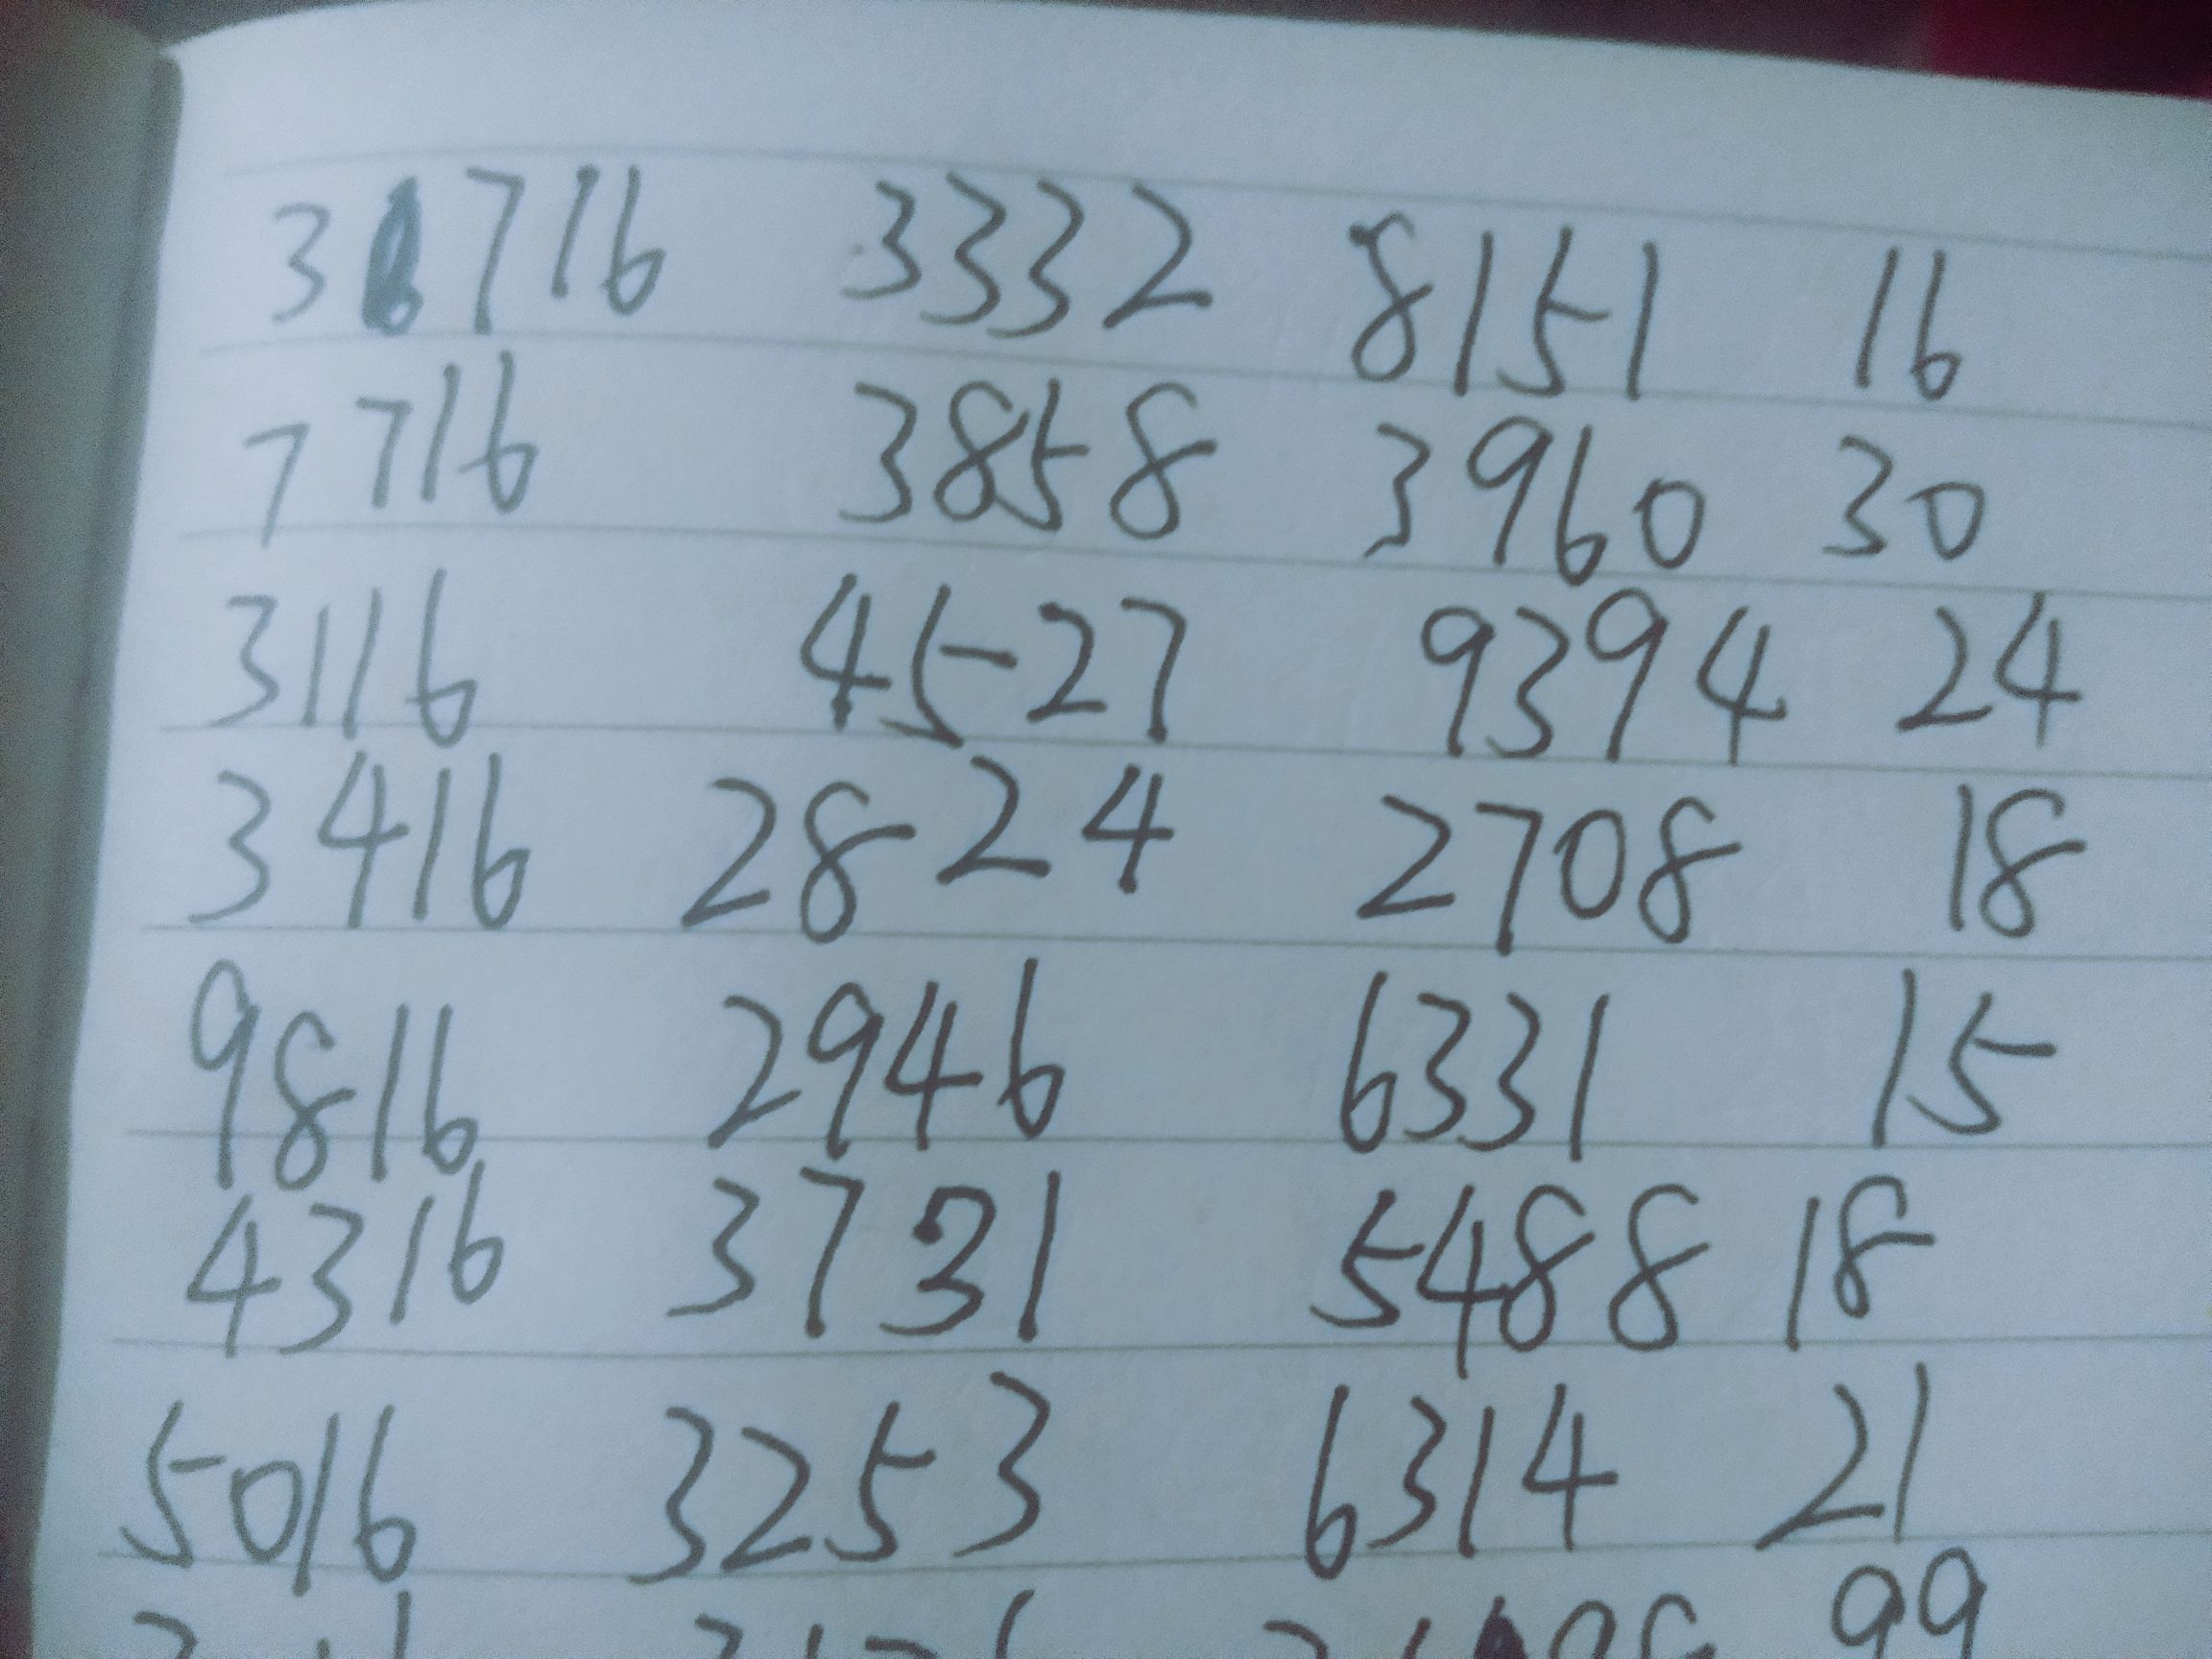 3716 3332 8151 16
7716 3858 3960 30
3116 4527 9394 24
3416 2824 2708 18
9816 2946 6331 15
4316 3731 5488 18
5016 3253 6314 21
99